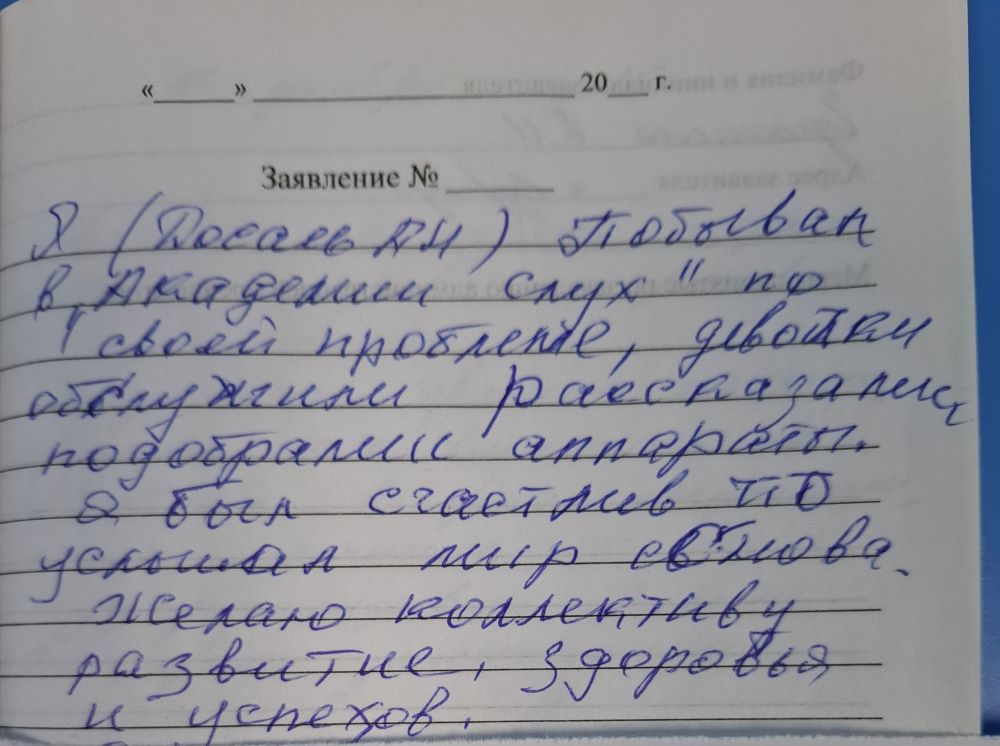 «______» ______________________ 20___ г.
Заявление № ________
Я (Досаль АН) Побывал
в "Академии слух" по
своей проблеме, девочки
обслужили рассказали,
подобрали аппараты.
я был счастлив что
услышал мир снова.
Желаю коллективу
развитие, здоровья
и успехов.